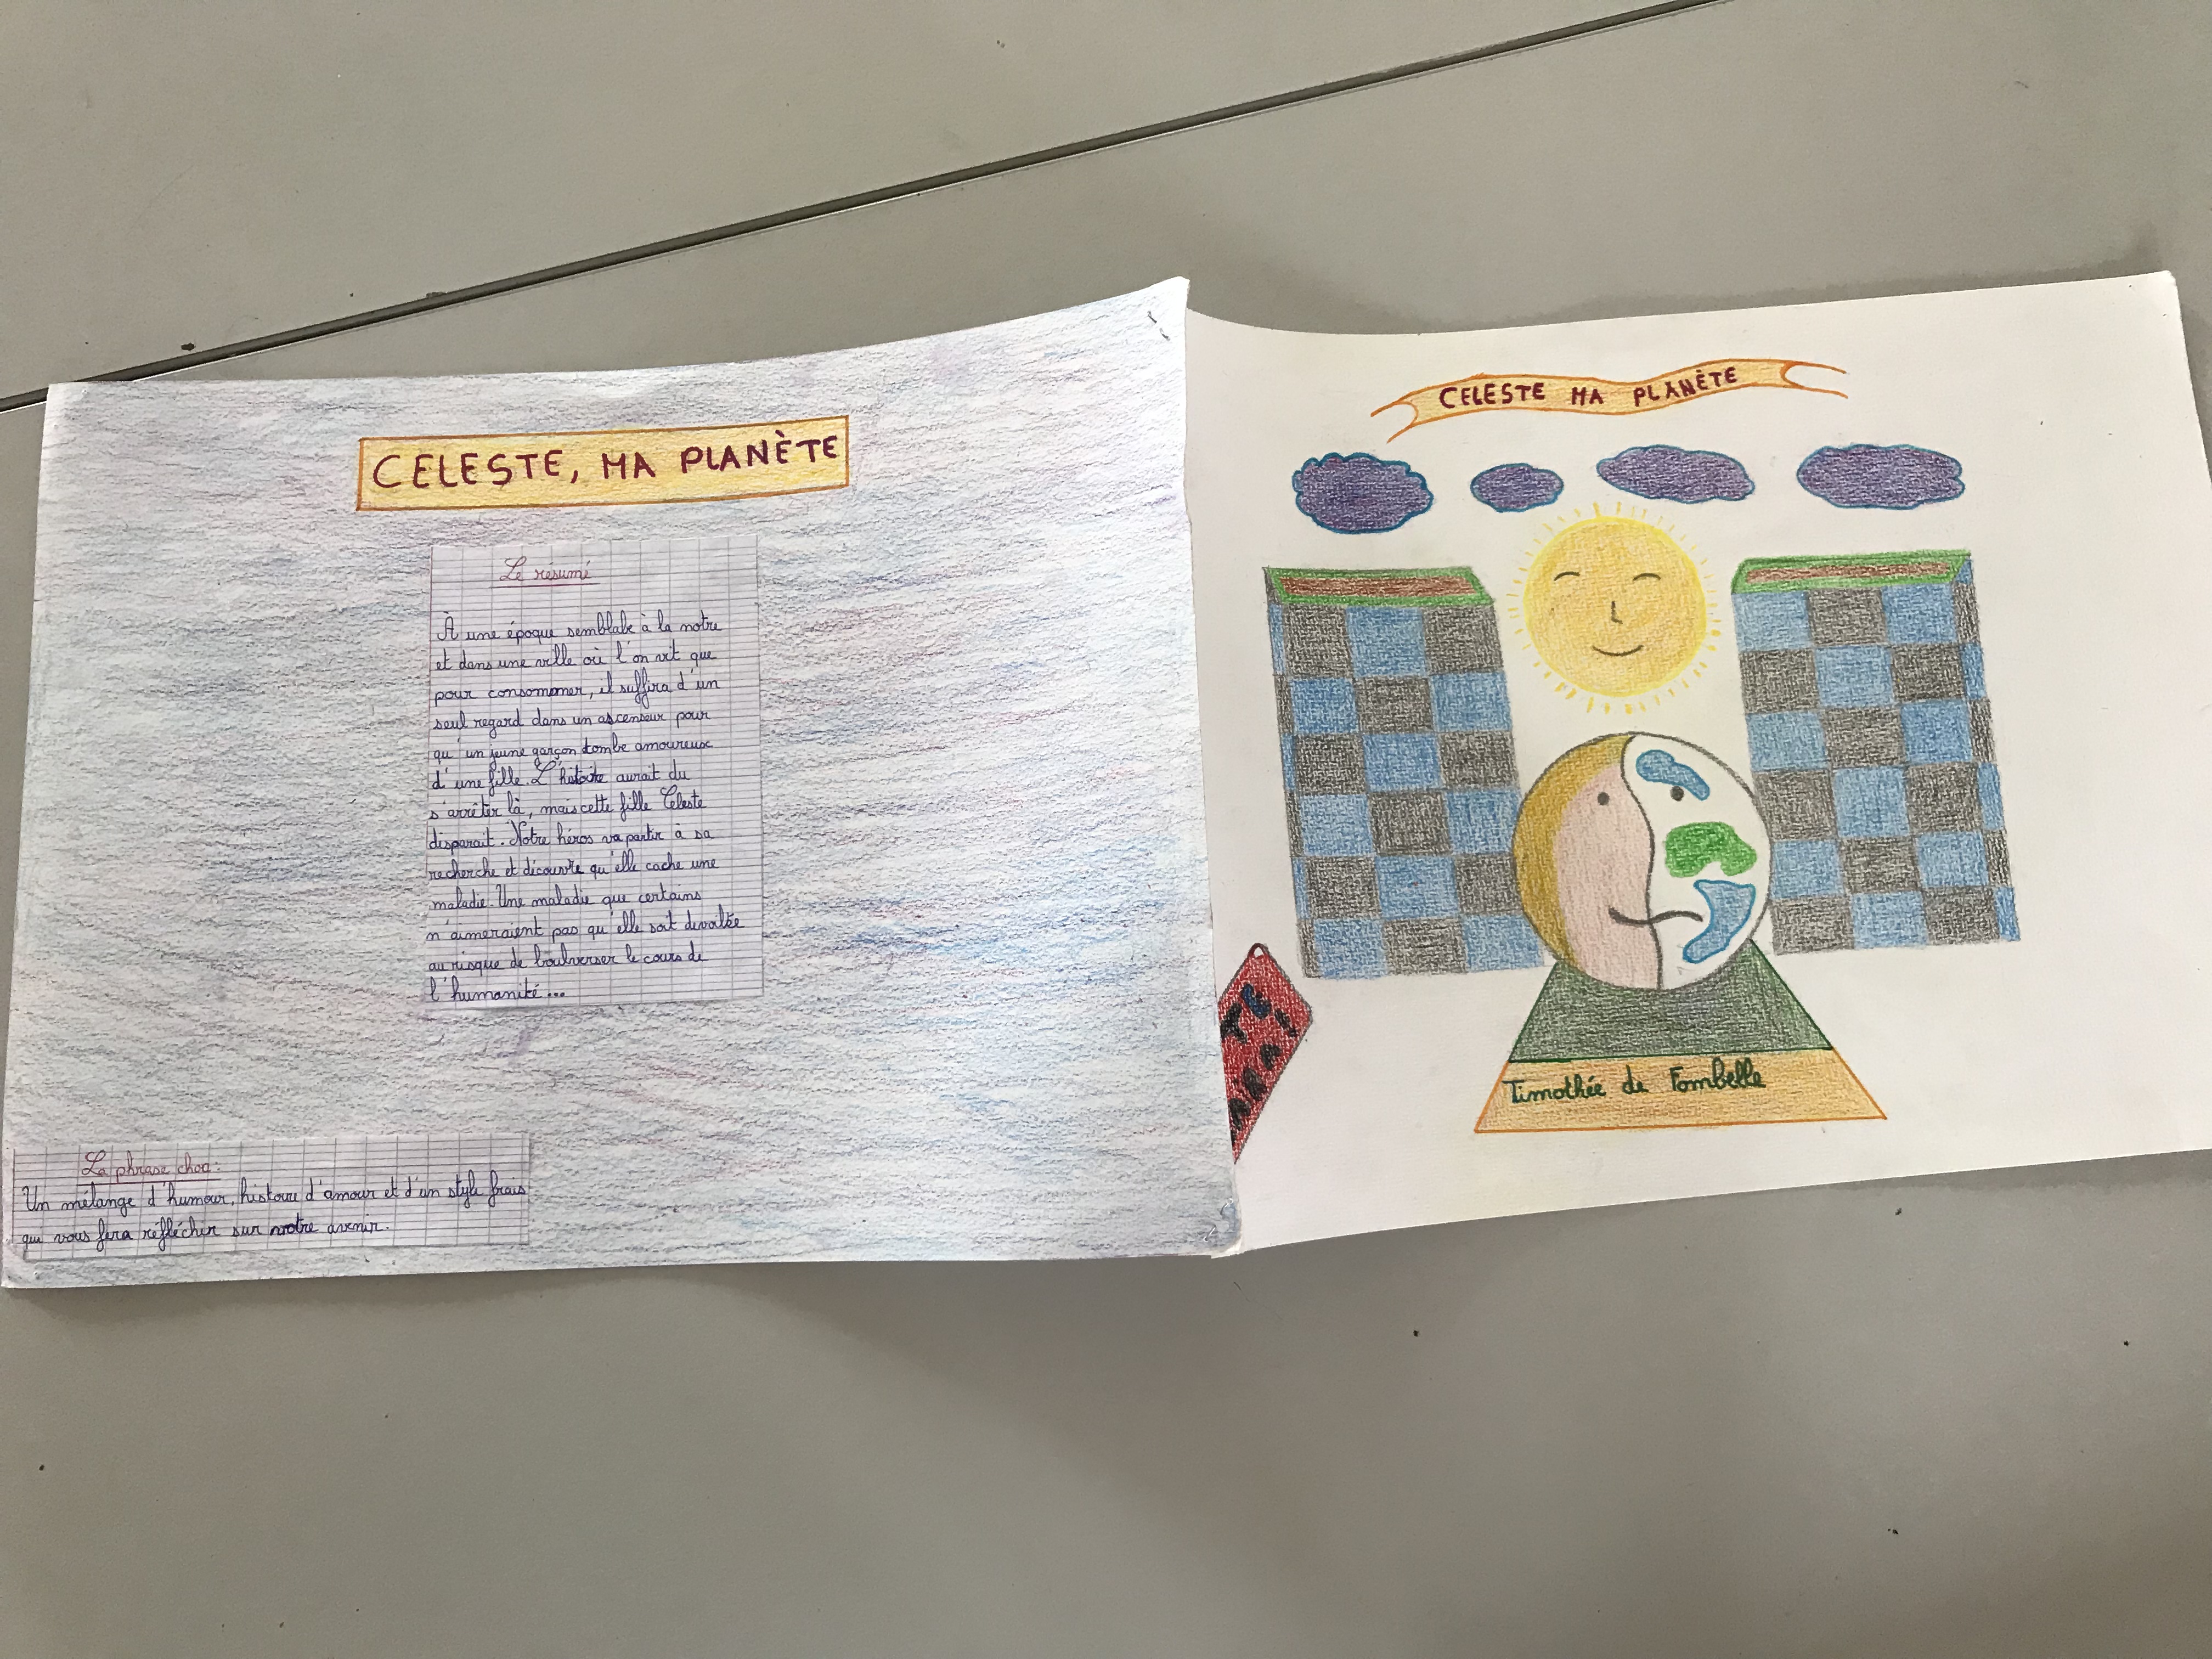 CELESTE, MA PLANÈTE
Le résumé
À une époque semblabe à la notre
et dans une ville où l'on vit que
pour consommer, il suffira d'un
seul regard dans un ascenseur pour
qu'un jeune garçon tombe amoureux
d'une fille. L'histoire aurait du
s'arrêter là, mais cette fille Celeste
disparait. Notre héros va partir à sa
recherche et découvre qu'elle cache une
maladie. Une maladie que certains
n'aimeraient pas qu'elle soit dévoilée
au risque de boulverser le cours de
l'humanité...
La phrase choc:
Un mélange d'humour, histoire d'amour et d'un style frais
qui vous fera réflécher sur notre avenir.
CELESTE MA PLANÈTE
Timothée de Fombelle